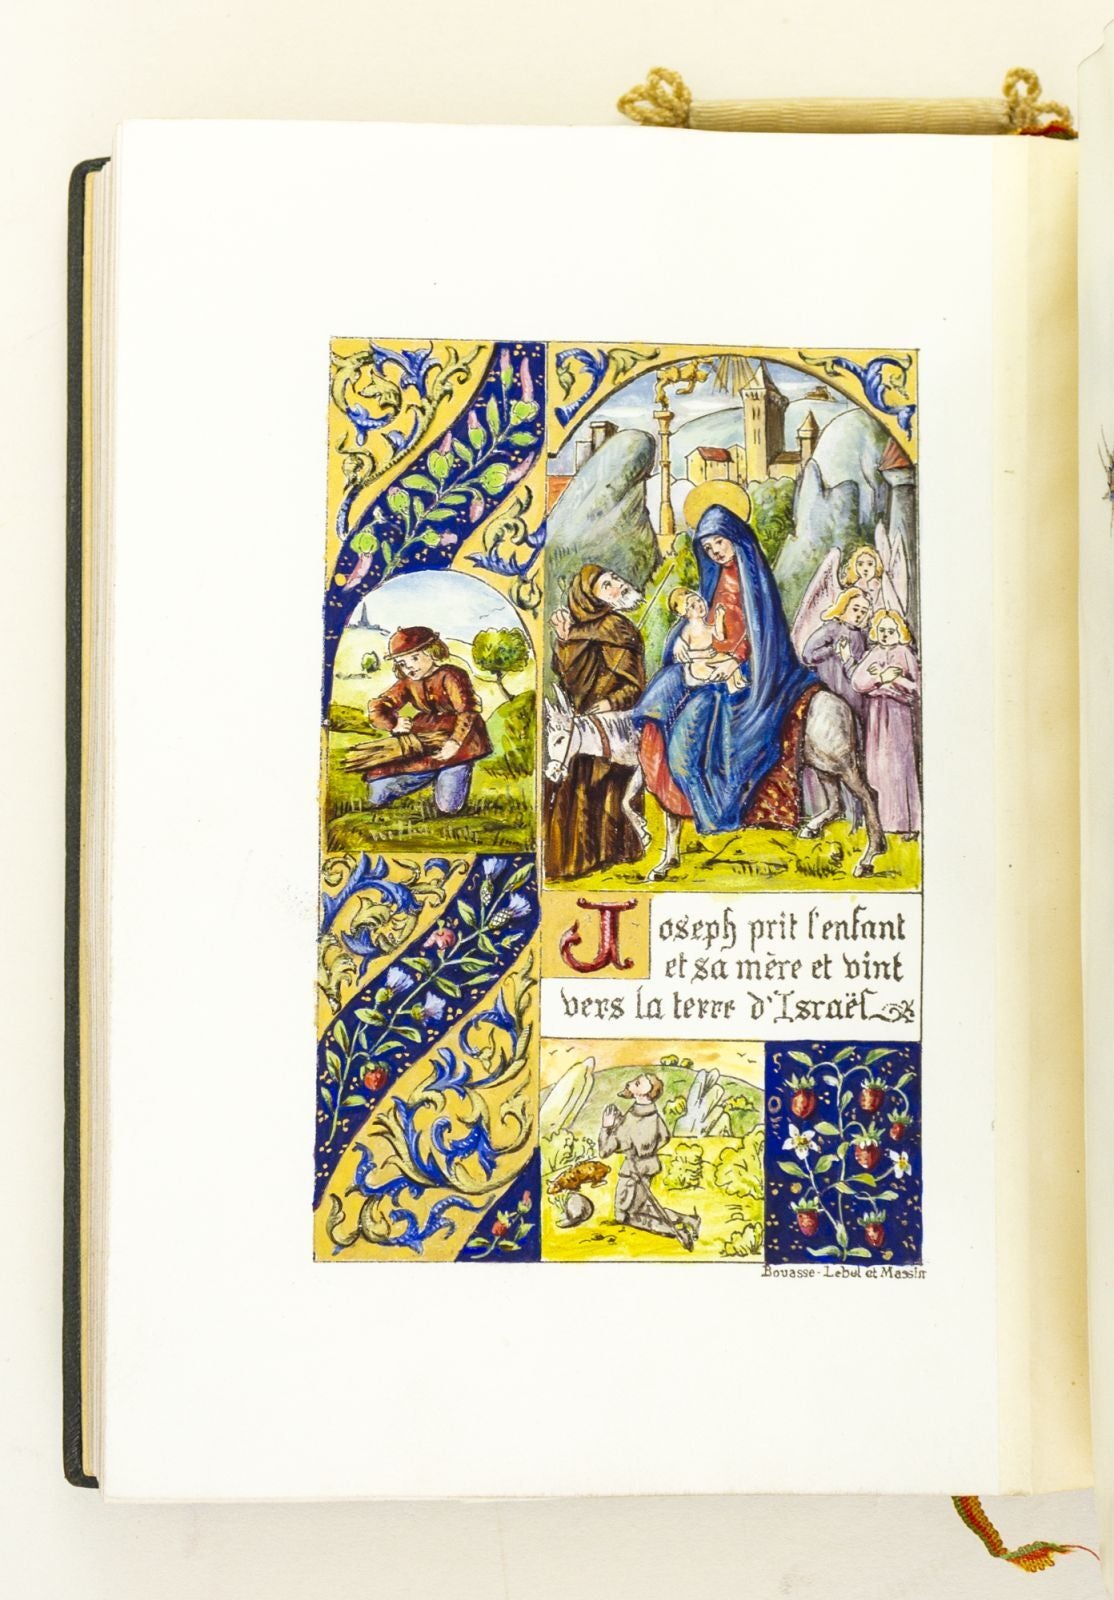 Joseph prit l'enfant
et sa mère et vint
vers la terre d'Israël
Bouasse-Lebel et Massin